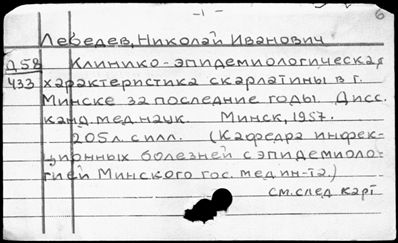 -1-
б
Лебедев, Николай Иванович
Д58 Клинико-эпидемиологическая
433 характеристика скарлатины в г.
Минске за последние годы. Дисс.
канд. мед. наук. Минск, 1957.
205 л. с илл. (Кафедра инфек-
ционных болезней с эпидемиоло-
гией Минского гос. мед ин-та.)
см. след карт